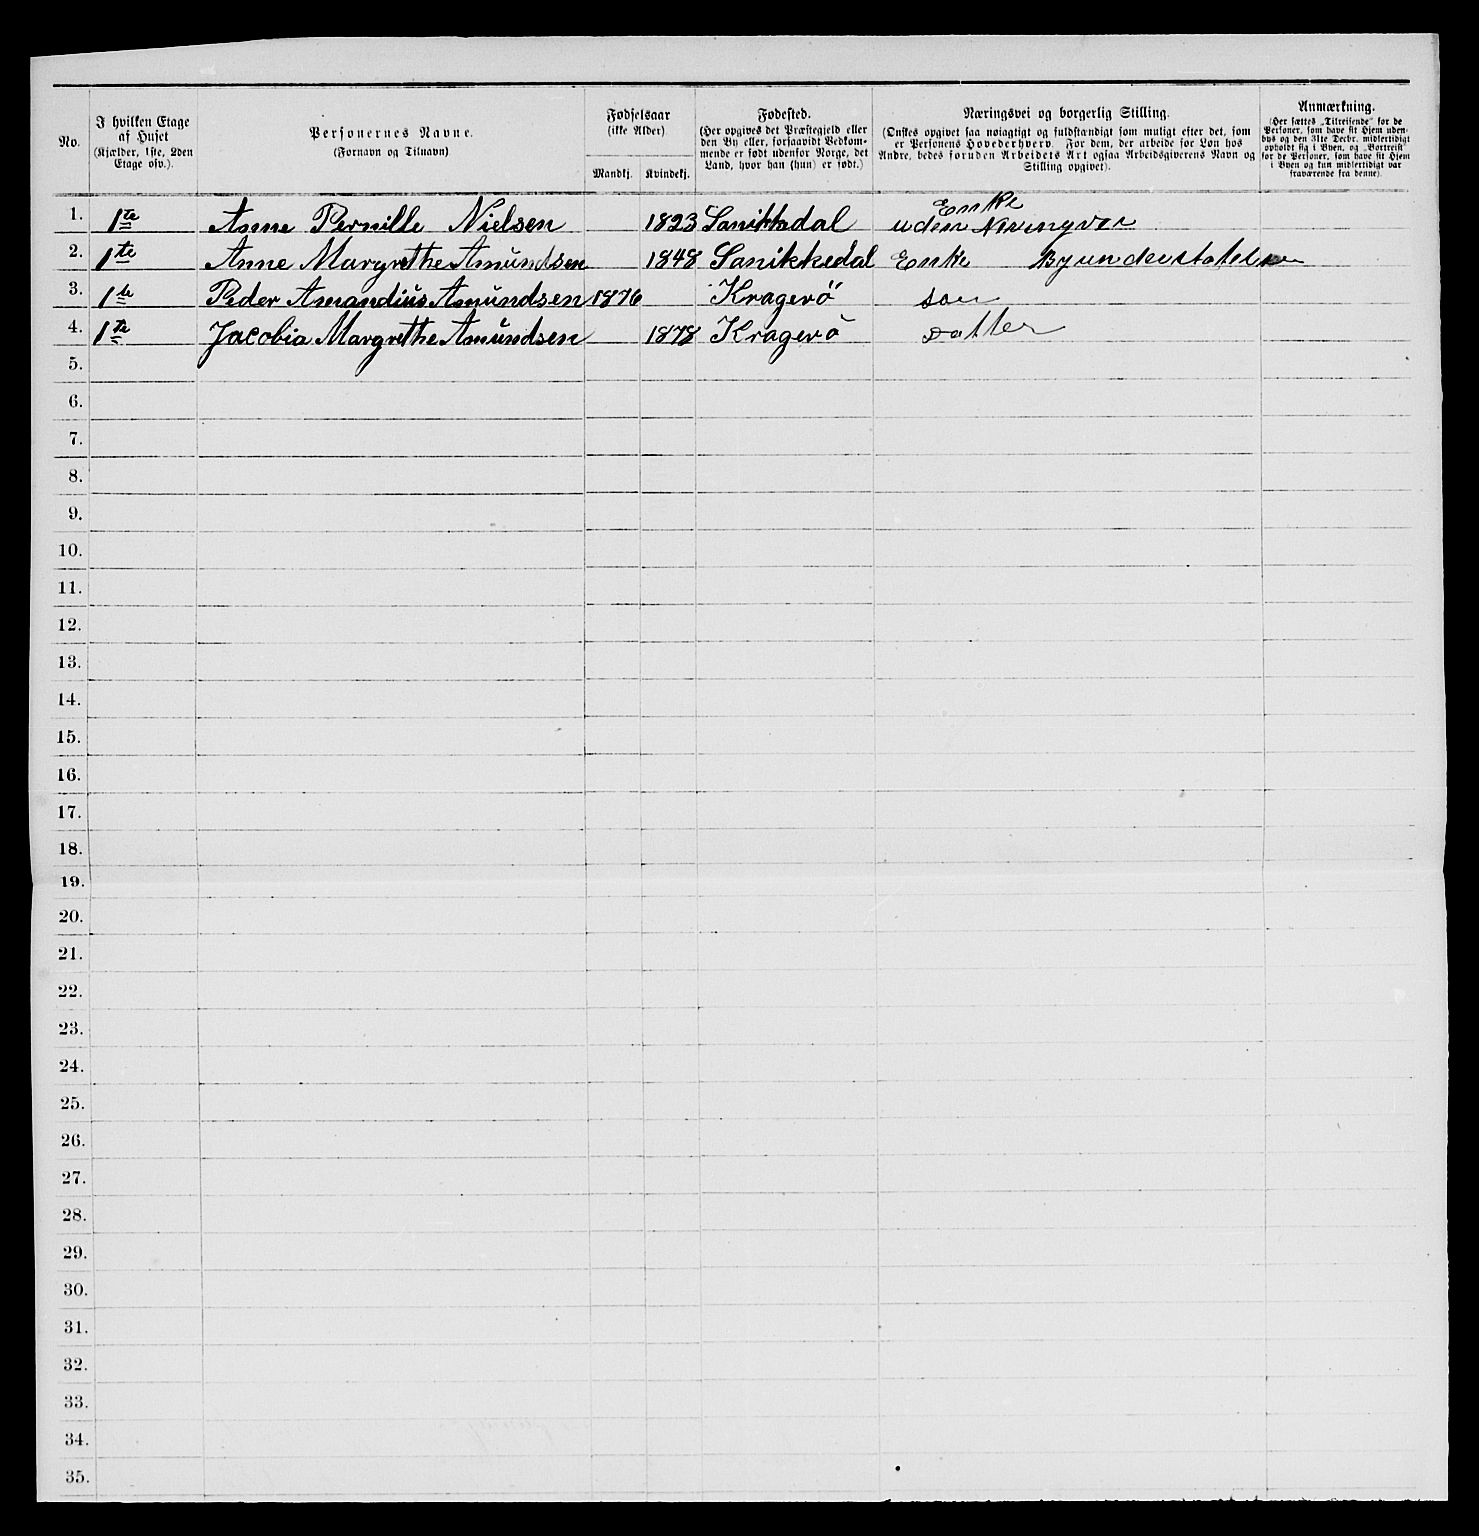 No.
I hvilken Etage
af Huset
(Kjælder, 1ste, 2den
Etage osv.).
Personernes Navne.
(Fornavn og Tilnavn)
Fødselsaar
(ikke Alder)
Mandkj. Kvindekj.
Fødested.
(Her opgives det Præstegjeld eller
den By eller, forsaavidt Vedkom-
mende er født udenfor Norge, det
Land, hvor han (hun) er født.)
Næringsvei og borgerlig Stilling.
(Ønskes opgivet saa nøiagtigt og fuldstændigt som muligt efter det, som
er Personens Hovederhverv. For dem, der arbeide for Løn hos
Andre, bedes foruden Arbeidets Art ogsaa Arbeidsgiverens Navn og
Stilling opgivet).
Anmærkning.
(Her sættes „Tilreisende" for de
Personer, som have sit Hjem uden-
bys og den 31te Decbr. midlertidigt
opholdt sig i Byen, og „Bortreist"
for de Personer, som have sit Hjem
i Byen og kun midlertidigt var
fraværende fra denne).
Enke
1. 1te Anne Pernille Nielsen 1823 Sanikkedal uden Næringvei
2. 1te Anne Margrethe Amundsen 1848 Sanikkedal Enke Byunderstøtelse
3. 1te Peder Amandius Amundsen 1876 Kragerö son
4. 1te Jacobia Margrethe Amundsen 1878 Kragerö datter
5.
6.
7.
8.
9.
10.
11.
12.
13.
14.
15.
16.
17.
18.
19.
20.
21.
22.
23.
24.
25.
26.
27.
28.
29.
30.
31.
32.
33.
34.
35.